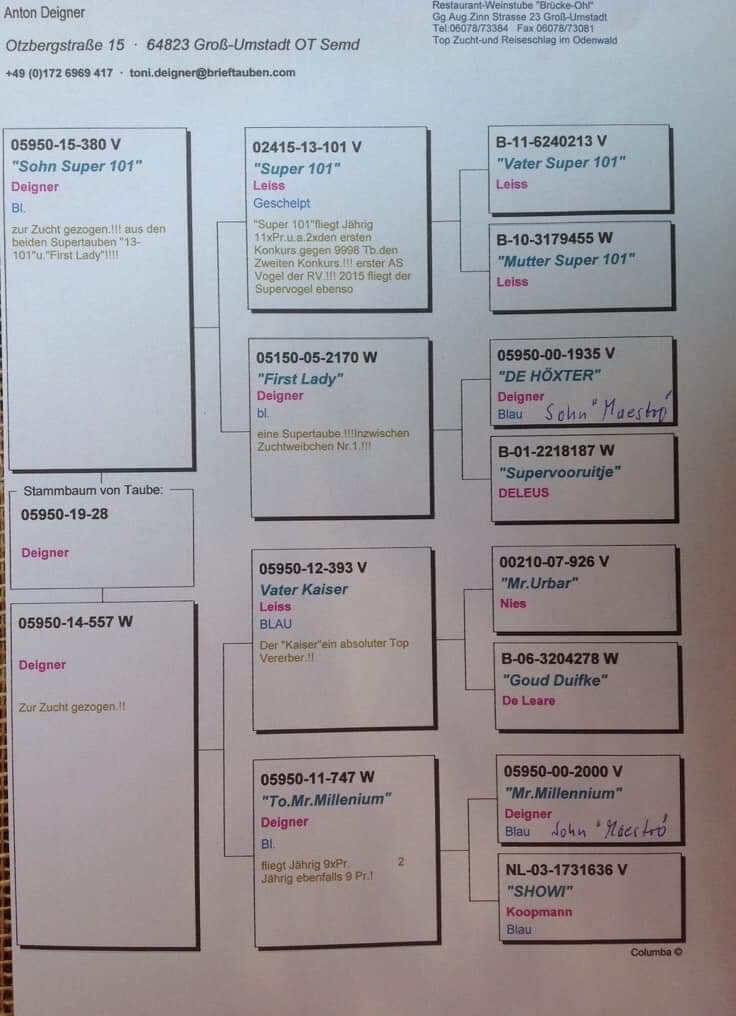 Anton Deigner
Otzbergstraße 15 · 64823 Groß-Umstadt OT Semd
+49 (0)172 6969 417 · toni.deigner@brieftauben.com
Restaurant-Weinstube "Brücke-Ohl"
Gg.Aug.Zinn Strasse 23 Groß-Umstadt
Tel:06078/73384 Fax 06078/73081
Top Zucht-und Reiseschlag im Odenwald
05950-15-380 V
"Sohn Super 101"
Deigner
Bl.
zur Zucht gezogen.!!! aus den
beiden Supertauben "13-
101"u."First Lady"!!!!
Stammbaum von Taube:
05950-19-28
Deigner
05950-14-557 W
Deigner
Zur Zucht gezogen.!!
02415-13-101 V
"Super 101"
Leiss
Gescheipt
"Super 101"fliegt Jährig
11xPr.u.a.2xden ersten
Konkurs.gegen 9998 Tb.den
Zweiten Konkurs.!!! erster AS
Vogel der RV.!!! 2015 fliegt der
Supervogel ebenso
05150-05-2170 W
"First Lady"
Deigner
bl.
eine Supertaube.!!!Inzwischen
Zuchtweibchen Nr.1.!!!
05950-12-393 V
Vater Kaiser
Leiss
BLAU
Der "Kaiser"ein absoluter Top
Vererber.!!
05950-11-747 W
"To.Mr.Millenium"
Deigner
Bl.
fliegt Jährig 9xPr. 2
Jährig ebenfalls 9 Pr.!
B-11-6240213 V
"Vater Super 101"
Leiss
B-10-3179455 W
"Mutter Super 101"
Leiss
05950-00-1935 V
"DE HÖXTER"
Deigner
Blau Sohn "Maestro"
B-01-2218187 W
"Supervooruitje"
DELEUS
00210-07-926 V
"Mr.Urbar"
Nies
B-06-3204278 W
"Goud Duifke"
De Leare
05950-00-2000 V
"Mr.Millennium"
Deigner
Blau Sohn "Maestro"
NL-03-1731636 V
"SHOWI"
Koopmann
Blau
Columba ©